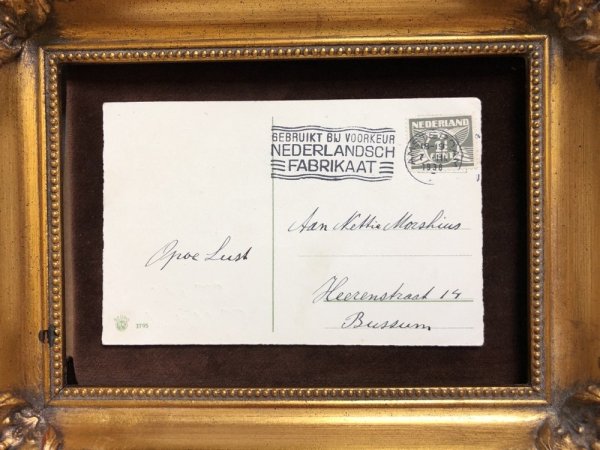 GEBRUIKT BIJ VOORKEUR
NEDERLANDSCH
FABRIKAAT
NEDERLAND
CENT
1936
Aan Nettie Morshuis
Opoe Lust
Heerenstraat 14
Bussum
3795